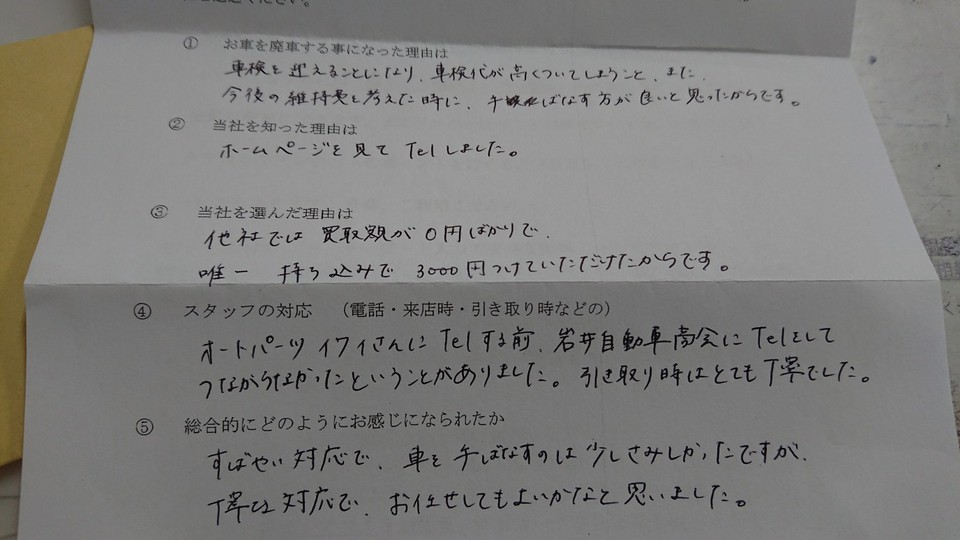 ください。
① お車を廃車する事になった理由は
車検を迎えることになり、車検代が高くついてしまうこと、また、
今後の維持費を考えた時に、手ばなす方が良いと思ったからです。
② 当社を知った理由は
ホームページを見て Telしました。
③ 当社を選んだ理由は
他社では 買取額が 0円ばかりで、
唯一 持ち込みで 3000円つけていただけたからです。
④ スタッフの対応 (電話・来店時・引き取り時などの)
オートパーツ イワイさんに Telする前、岩井自動車商会に Telをして
つながらなかったということがありました。引き取り時はとても丁寧でした。
⑤ 総合的にどのようにお感じになられたか
すばやい対応で、車を手ばなすのは少しさみしかったですが、
丁寧な対応で、お任せしてもよいかなと思いました。